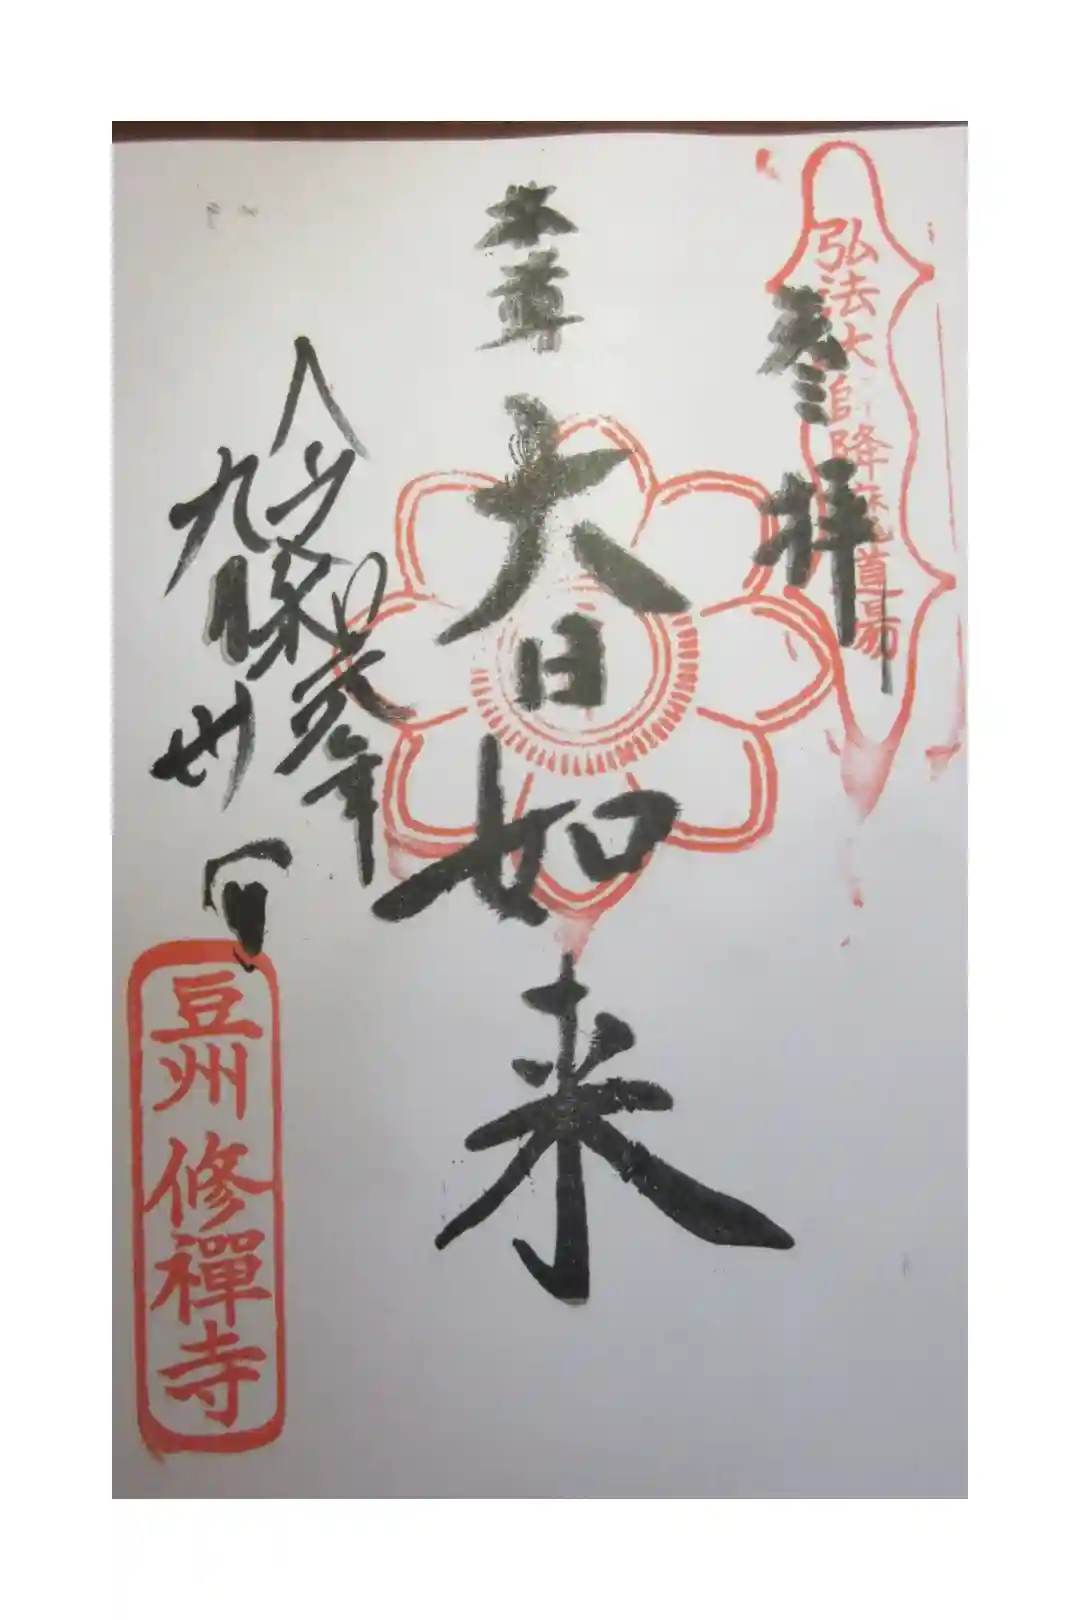 弘法大師降魔道場
参拝
本尊
大日如来
令和弐年
九月
日
豆州修禅寺